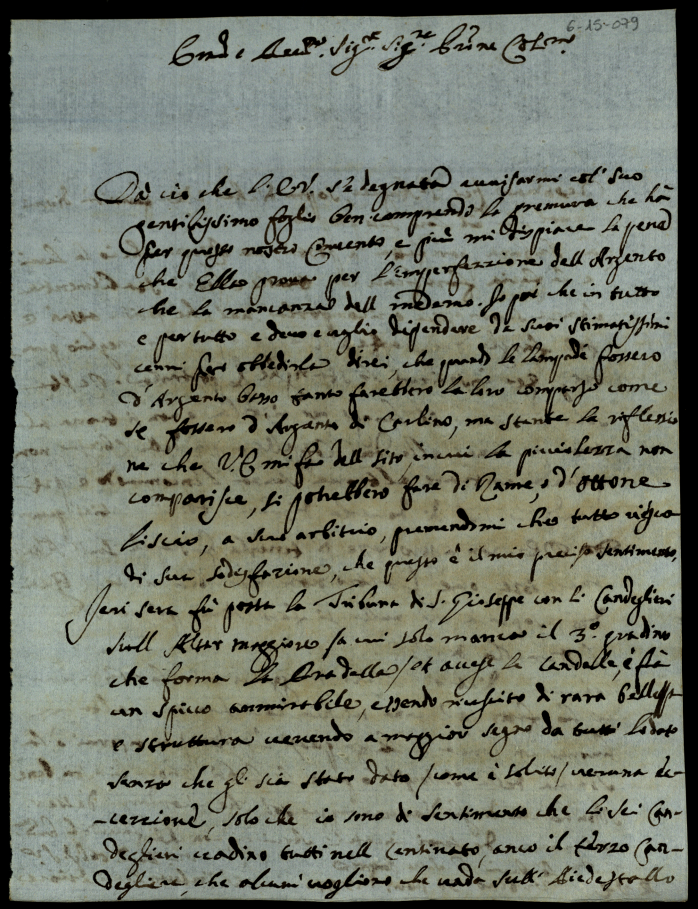 6-15-079
Sig.re Sig.re
Da ciò che l. S'è degnata avvisarmi col suo
gentilissimo foglio ben comprendo la premura che hà
per questo nostro Convento, e più mi dispiace la pena
che Ella prova per l'Imperfezzione dell Argento
che la mancanza dell medemo. So poi che in tutto
e per tutto e devo e voglio dipendere da suoi stimatissimi
cenni però obbedirla direi, che quando le lampade fossero
d'Argento basso tanto farebbero la loro comparsa come
se fossero d'Argento di Carlino, ma stante la riflessio
ne che V. mi fà dell sito, in cui la picciolezza non
comparisce, si potrebbero fare di Rame, o d'ottone
liscio, a suo arbitrio, premendomi che tutto
di sua sodisfazione, che questo è il mio preciso sentimento,
Jeri sera fù posta la Tribuna di S. Giuseppe con li Candeglieri
sull Altar maggiore /a cui solo manca il 3.o gradino
che forma la Bradella/ et accese le candelle, e fà
un spicco ammirabile, essendo riuscito di rara bellezza
e struttura venendo a maggior segno da tutti lodato
senza che gli sia stato dato /come è solito/ veruna ec-
-cezzione, solo che io sono di sentimento che li sei Can-
deglieri vadino tutti nell centinato, anco il terzo Can-
degliere, che alcuni vogliono che vada sull Piedestallo